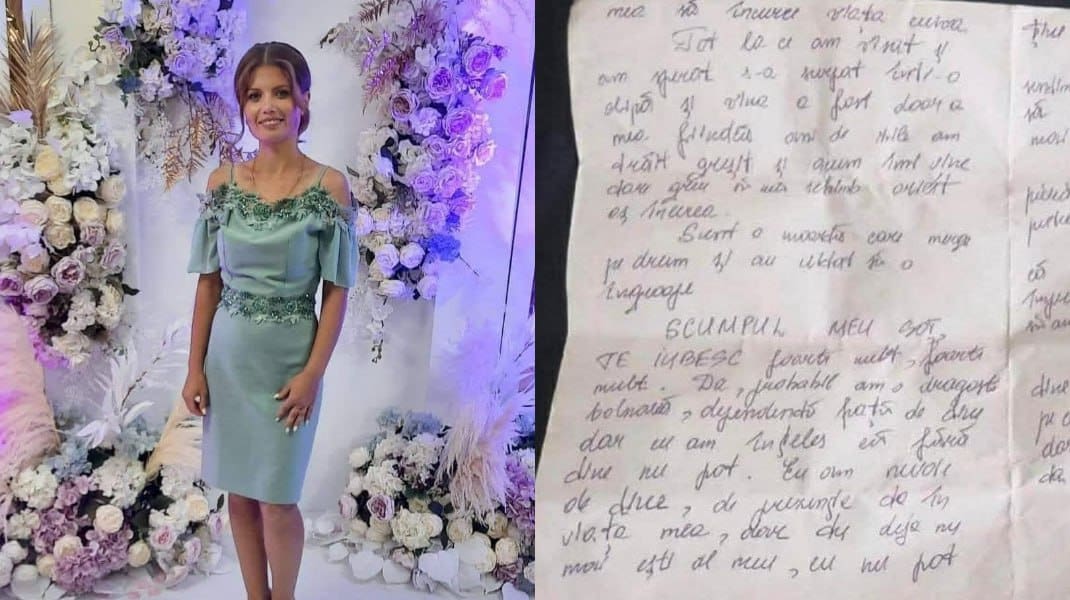 mea să încurce viața cuiva.
Tot la ce am visat și
am sperat s-a surpat într-o
clipă și vina a fost doar a
mea fiindcă ani de zile am
trăit greșit și acum îmi vine
dare greu să mă schimb oricât
aș încerca.
Sunt o moartă care merge
pe drum și au uitat să o
îngroape
SCUMPUL MEU SOȚ,
TE IUBESC foarte mult, foarte
mult. Da, probabil am o dragoste
bolnavă, dependență față de tine
dar eu am înțeles că fără
tine nu pot. Eu am nevoie
de tine, de prezența ta în
viața mea, doar că deja nu
mai ești al meu, eu nu pot
ține
să
mori
că
tine
pe
dar